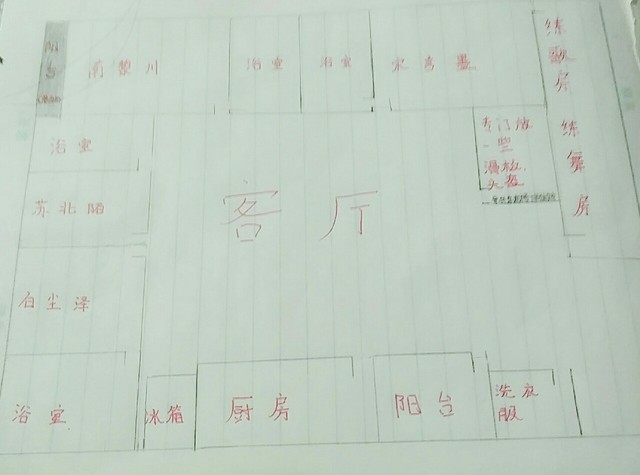 阳台
南黎川
浴室
浴室
宋亨墨
练歌房
练舞房
浴室
专门放
一些
滑板、
头盔
苏北陌
客厅
白尘泽
浴室
冰箱
厨房
阳台
洗衣
服